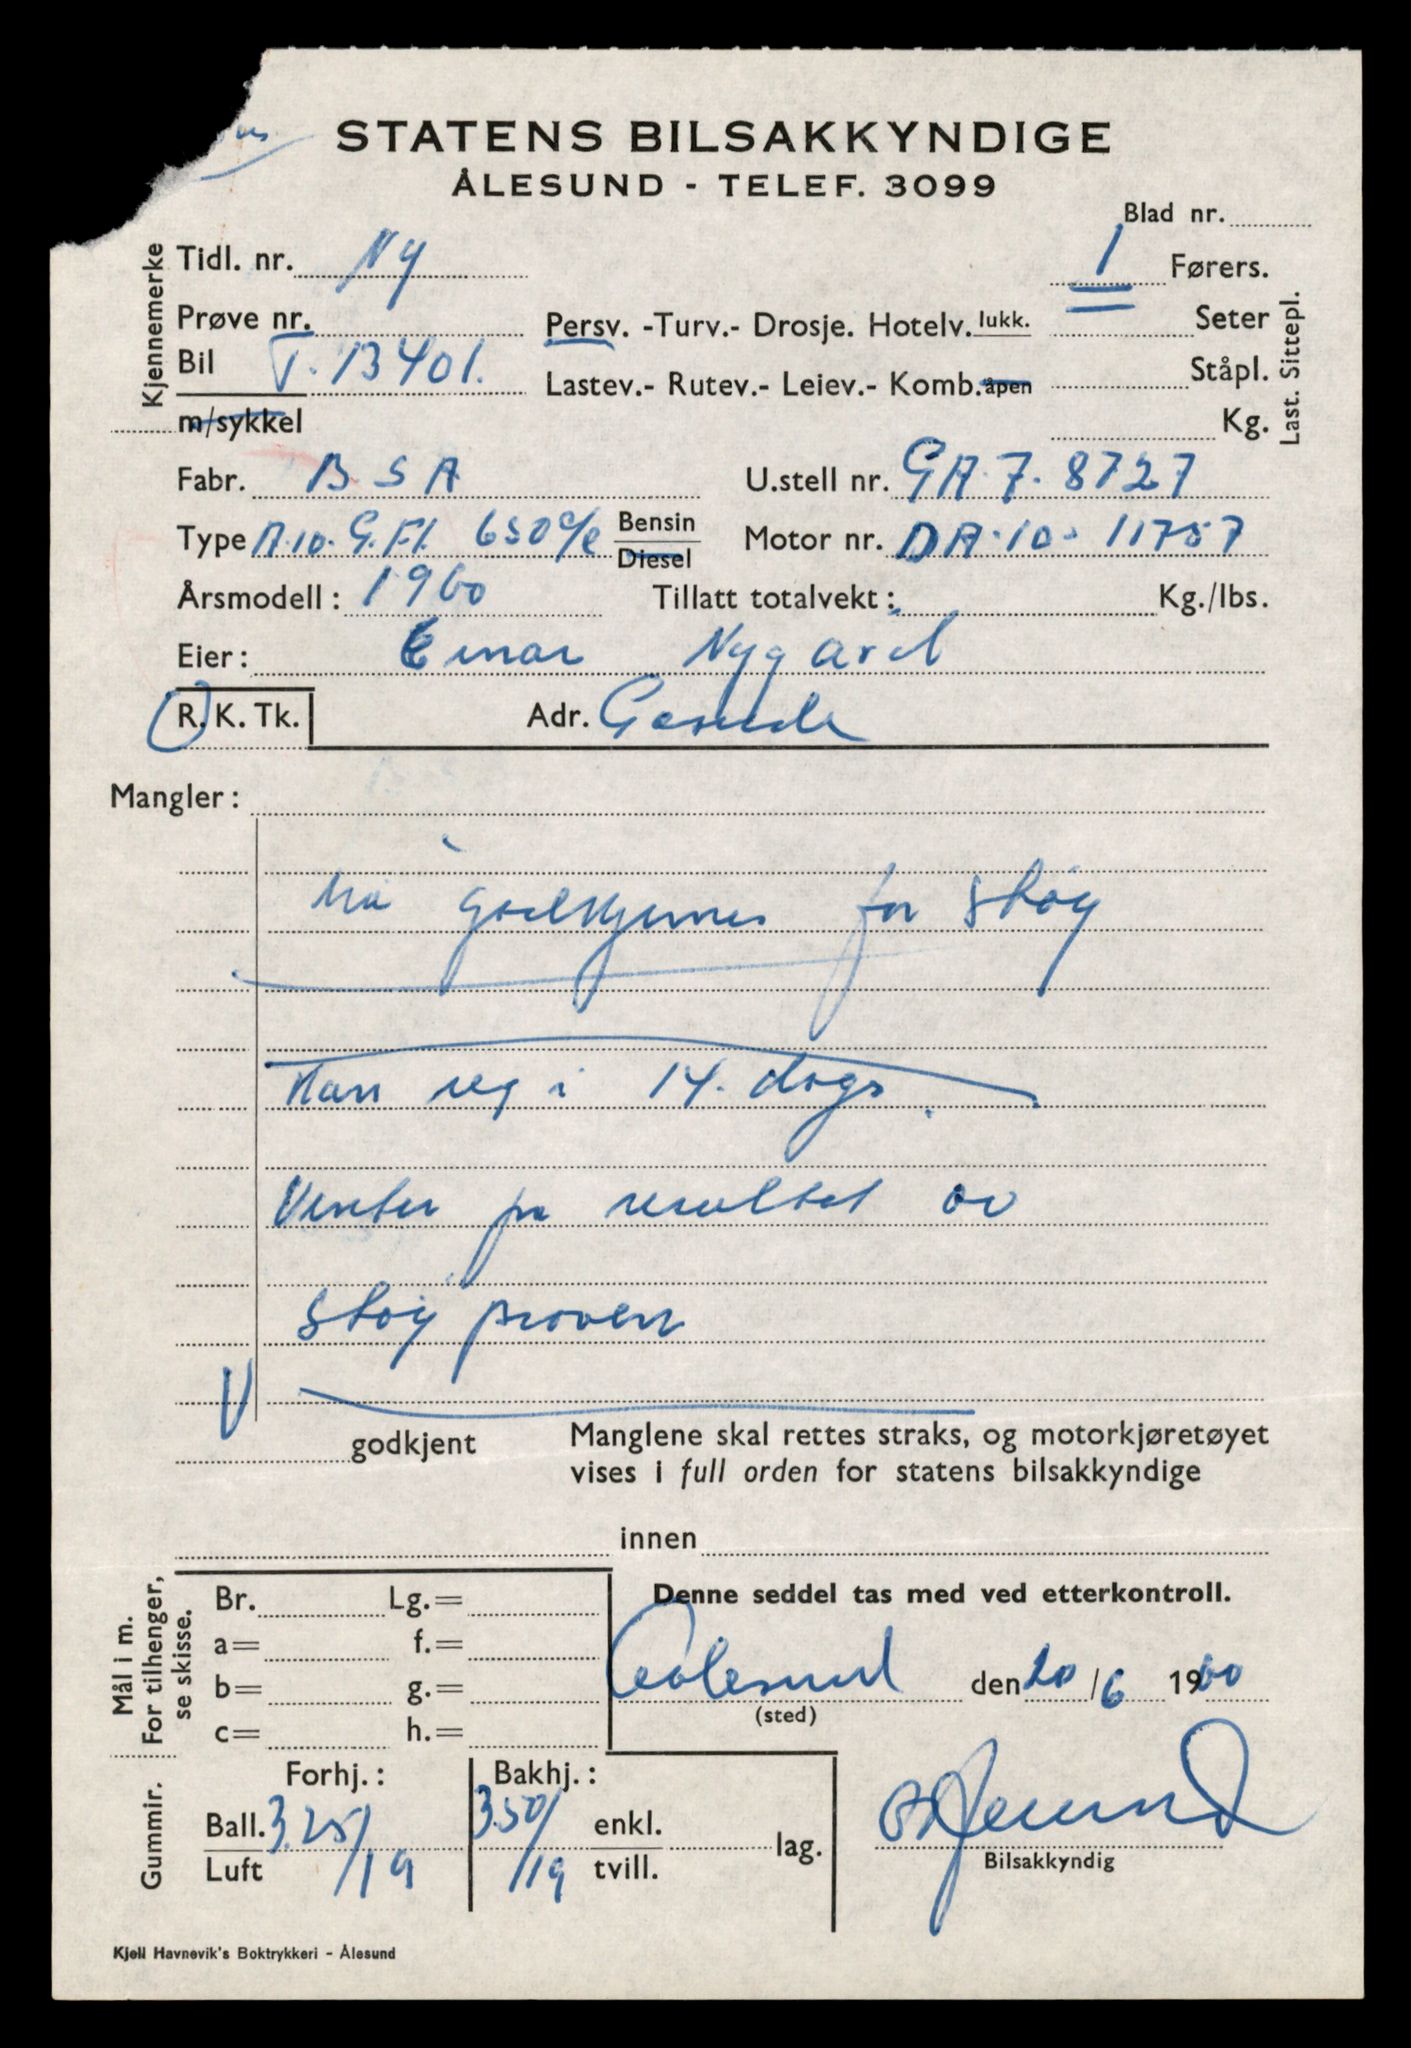 STATENS BILSAKKYNDIGE
ÅLESUND - TELEF. 3099
Blad nr.
Kjennemerke
Tidl. nr. Ny
1 Førers.
Prøve nr.
Persv. -Turv.- Drosje. Hotelv. lukk.
Seter
Bil T. 13401.
Lastev.- Rutev.- Leiev.- Komb. åpen
Ståpl.
m/sykkel
Kg.
Last. Sittepl.
Fabr. B S A
U.stell nr. GA.7.8727
Type A.10. G.Fl. 650 c/c Bensin
Diesel
Motor nr. DA.10-11757
Årsmodell: 1960
Tillatt totalvekt: Kg./lbs.
Eier: Einar Nygård
R. K. Tk.
Adr.
Mangler:
Må godkjennes for støy
Kan reg i 14. dags.
Venter på resultat av
støy prøven
V
godkjent
Manglene skal rettes straks, og motorkjøretøyet
vises i full orden for statens bilsakkyndige
innen
Mål i m.
For tilhenger,
se skisse.
Br. Lg.=
a= f.=
b= g.=
c= h.=
Denne seddel tas med ved etterkontroll.
Aalesund den 20/6 1960
(sted)
Gummir.
Forhj.: Bakhj.:
Ball. 3.25/19 3.50/19 enkl.
Luft tvill.
lag.
Bilsakkyndig
Kjell Havnevik's Boktrykkeri - Ålesund